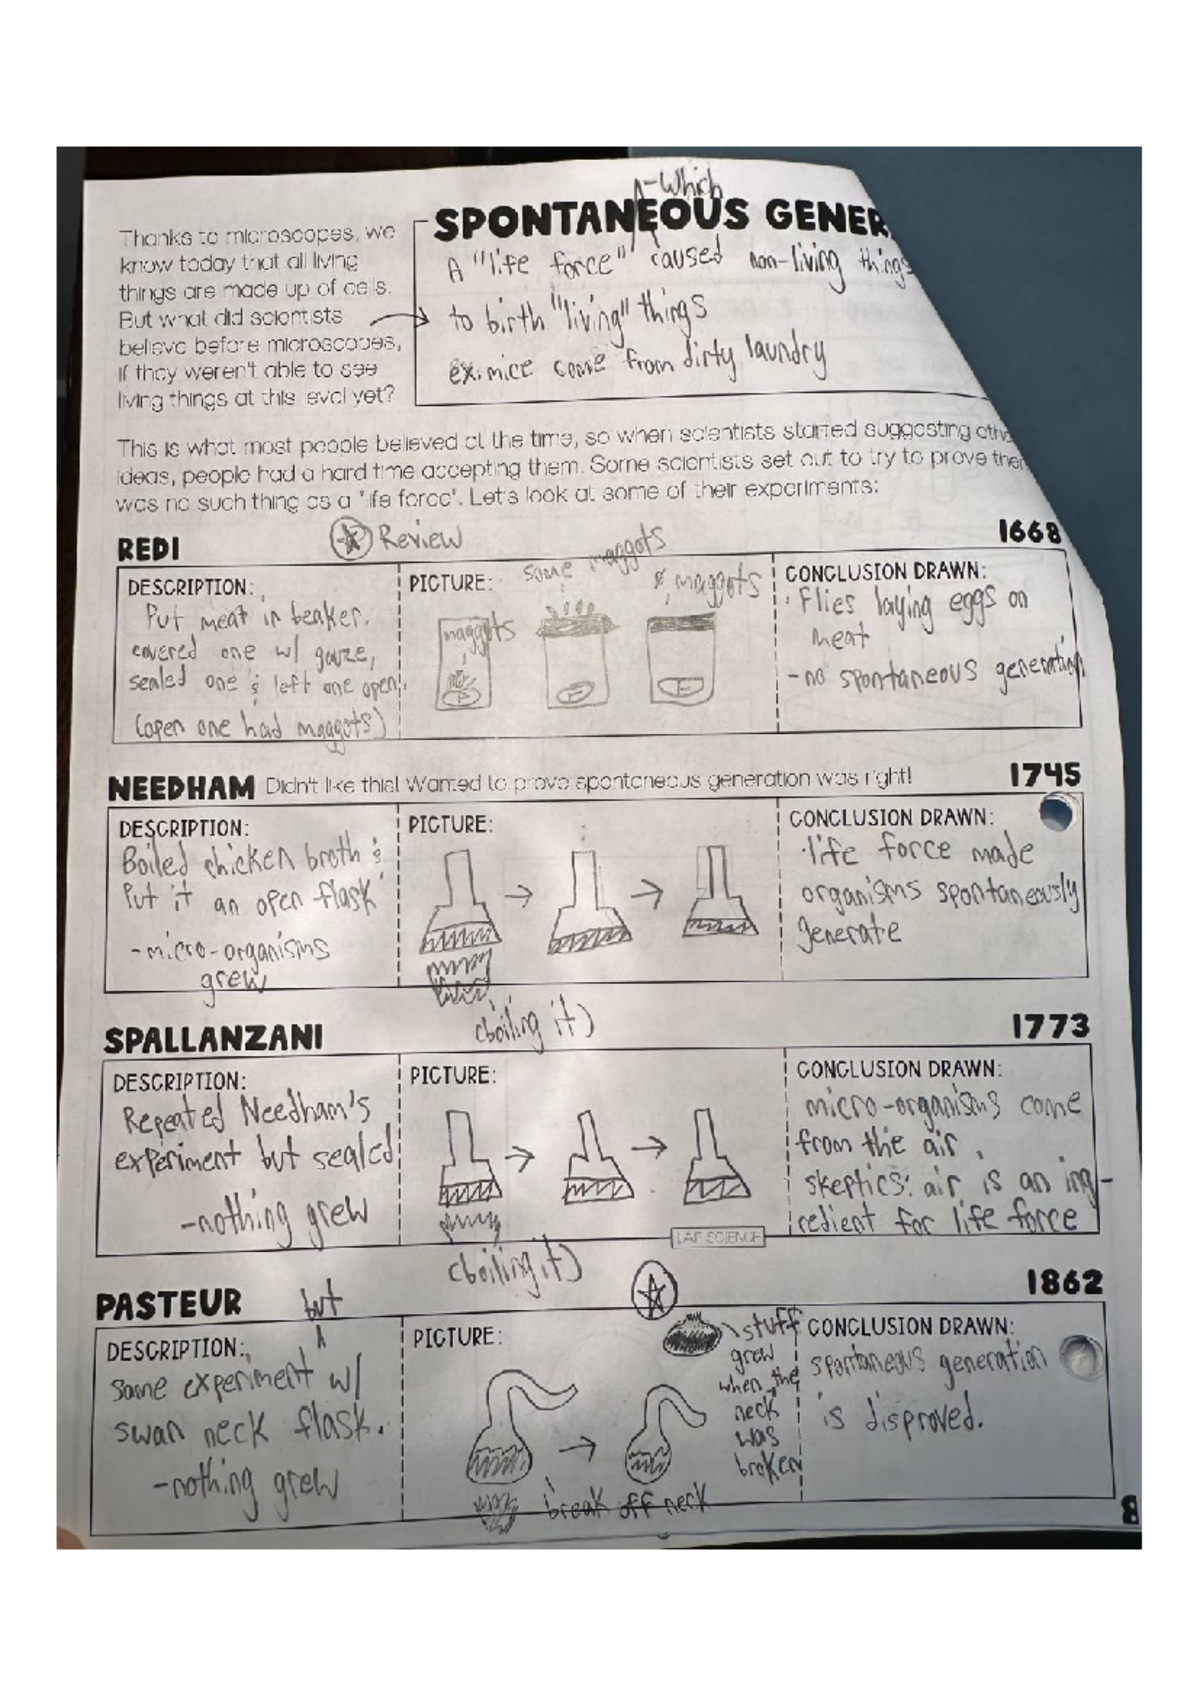 -which
SPONTANEOUS GENER
Thanks to microscopes, we
know today that all living
things are made up of cells.
But what did scientists
believe before microscopes,
if they weren't able to see
living things at this level yet?
A "life force" caused non-living things
to birth "living" things
ex: mice come from dirty laundry
This is what most people believed at the time, so when scientists started suggesting othe
ideas, people had a hard time accepting them. Some scientists set out to try to prove ther
was no such thing as a "life force". Let's look at some of their experiments:
REDI
Review
1668
DESCRIPTION:
Put meat in beaker.
covered one w/ gauze,
sealed one & left one open.
(open one had maggots)
PICTURE:
some maggots
maggots
maggots
CONCLUSION DRAWN:
Flies laying eggs on
meat
- no spontaneous generation
NEEDHAM Didn't like this! Wanted to prove spontaneous generation was right!
1745
DESCRIPTION:
Boiled chicken broth &
Put it an open flask
-micro-organisms
grew
PICTURE:
(boiling it)
CONCLUSION DRAWN:
life force made
organisms spontaneously
generate
SPALLANZANI
1773
DESCRIPTION:
Repeated Needham's
experiment but sealed
-nothing grew
PICTURE:
(boiling it)
CONCLUSION DRAWN:
micro-organisms come
from the air.
skeptics: air is an ing-
redient for life force
LAF SCIENCE
PASTEUR
1862
DESCRIPTION:
but
same experiment w/
swan neck flask.
-nothing grew
PICTURE:
stuff
grew
when the
neck
was
broken
break off neck
CONCLUSION DRAWN:
spontaneous generation
is disproved.
8